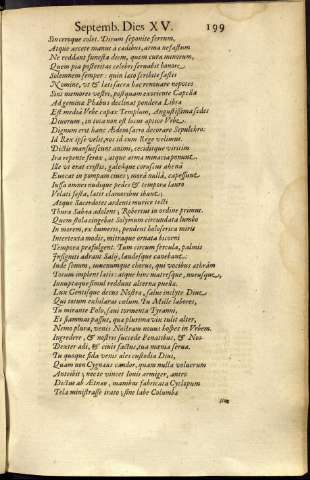 Septemb. Dies XV. 199
Sinceroque colet. Dirum seponite ferrum,
Atque arcete manus a cædibus, arma nefastum
Ne reddant funesta diem, quem cuncta minorum,
Quem pia posteritas celebri seruabit honore
Solemnem semper: quin lato scribite fastis
Nomine, vt & læti sacra hæc renouare nepotes
Sint memores vestri, postquam exoriente Capella
Ad gemina Phœbus declinat pondera Libræ
Est media Vrbe capax Templum, Augustissima sedes
Diuorum, in tota non est locus aptior Vrbe
Dignum erit hanc Ædem sacro decorare Sepulchro:
Id Rex ipse velit, vos id cum Rege velimus.
Dictis mansuescunt animi, ceciditque virûm
Ira repente ferox, atque arma minacia ponunt.
Ille vt erat cristis, galeâque coruscus ahena
Euocat in pompam ciues; mora nulla, capessunt
Iussa omnes nudique pedes & tempora lauro
Velati festa, latis clamoribus ibant.
Atque Sacerdotes ardenti murice tecti
Thura Sabæa adolent; Robertus in ordine primus.
Quem stola cingebat Solymum circumdata lumbo
In morem, ex humeris, pendent holoserica miris
Intertexta modis, mitraque ornata bicorni
Tempora præfulgent. Tum circum fercula, palmis
Insigniti adstant Salij, laudesque canebant.
Inde senum, iuuenumque chorus, qui vocibus æthram
Totam implent latis: atque hinc matresque, nurusque
Innuptæque simul reddunt alterna puellæ.
Lux Gentisque decus Nostra, salue inclyte Diue
Qui totum exhilaras cœlum Tu Mille labores,
Tu mirante Polo, sæui tormenta Tyranni,
Et flammas passus, quæ plurima vix tulit alter,
Nemo plura, venis Nostram nouus hospes in Vrbem.
Ingredere, & nostris succede Penatibus, & Nos
Dexter adi, & ciuis factus, tua mœnia serua.
Tu quoque fida venis ales custodia Diui,
Quam non Cygnæus candor, quam nulla volucrum
Anteibit, nec te vincet Iouis armiger, antro
Dictus ab Ætnæo, manibus fabricata Cyclopum
Tela ministrasse irato, sine labe Columba